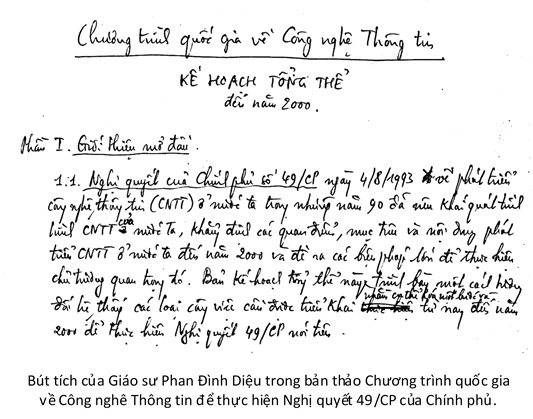 Chương trình quốc gia về Công nghệ Thông tin
KẾ HOẠCH TỔNG THỂ
đến năm 2000.
Phần I. Giới thiệu mở đầu.
1.1. Nghị quyết của Chính phủ số 49/CP ngày 4/8/1993 về phát triển
công nghệ thông tin (CNTT) ở nước ta trong những năm 90 đã nêu khái quát tình
hình CNTT của nước ta, khẳng định các quan điểm, mục tiêu và nội dung phát
triển CNTT ở nước ta đến năm 2000 và đề ra các biện pháp lớn để thực hiện
chủ trương quan trọng đó. Bản kế hoạch tổng thể này trình bày một cách tương
đối hệ thống các loại công việc cần được triển khai nhằm cụ thể hóa một bước và từ nay đến năm
2000 để thực hiện Nghị quyết 49/CP nói trên.
Bút tích của Giáo sư Phan Đình Diệu trong bản thảo Chương trình quốc gia
về Công nghê Thông tin để thực hiện Nghị quyết 49/CP của Chính phủ.